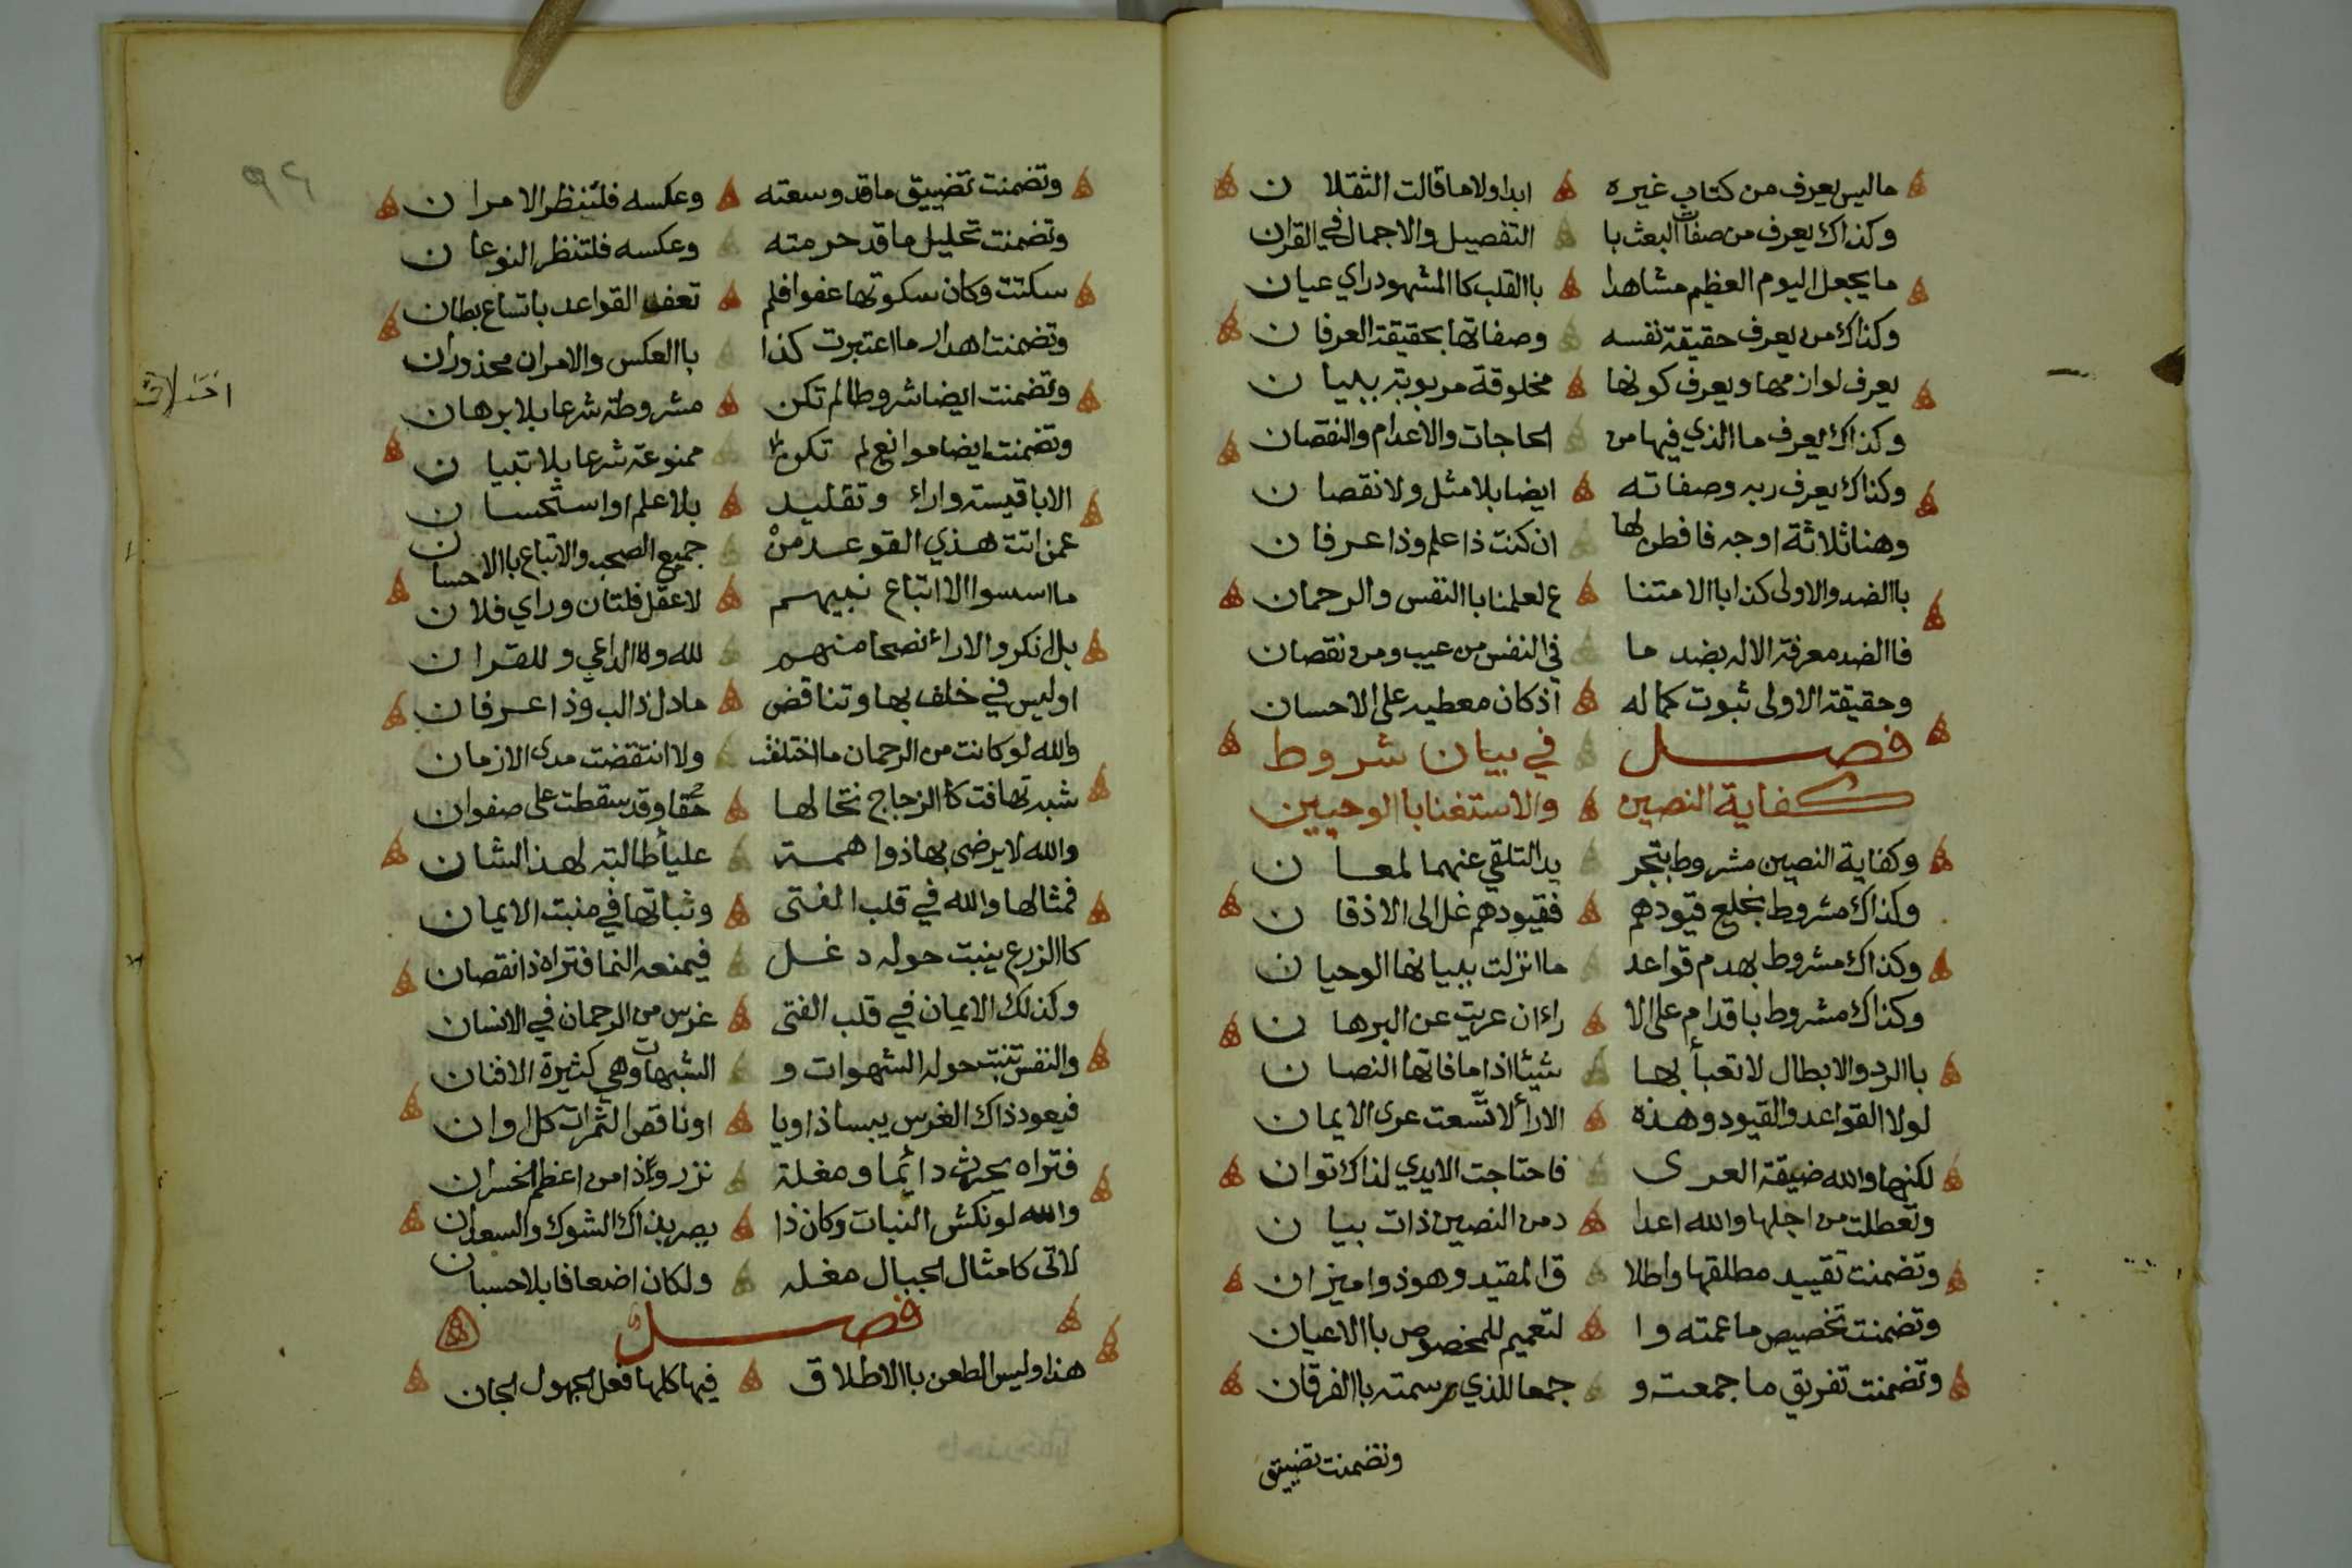 ماليس يعرف من كتاب غيره ابدا ولا ما قالت الثقلان
وكذاك يعرف من صفات البعث با التفصيل والاجمال في القران
ما يجعل اليوم العظيم مشاهدا باالقلب كاالمشهود راي عيان
وكذاك من يعرف حقيقة نفسه وصفاتها بحقيقة العرفان
يعرف لوازمها ويعرف كونها مخلوقة مربوبة ببيان
وكذاك يعرف ماالذي فيها من الحاجات والاعدام والنقصان
وكذاك يعرف ربه وصفاته ايضا بلا مثل ولا نقصان
وهنا ثلاثة اوجه فافطن لها ان كنت ذا علم وذا عرفان
باالضد والاولى كذا باالامتنا ع لعلمنا باالنفس والرحمان
فاالضد معرفة الاله بضد ما في النفس من عيب ومن نقصان
وحقيقة الاولى ثبوت كماله اذ كان معطيه على الاحسان
فصل في بيان شروط
كفاية النصين والاستغنا باالوحيين
وكفاية النصين مشروط بتجر يد التلقي عنهما لمعان
وكذاك مشروط بخلع قيودهم فقيودهم غل الى الاذقان
وكذاك مشروط بهدم قواعد ما انزلت ببيانها الوحيان
وكذاك مشروط باقدام على الا راء ان عريت عن البرهان
باالرد والابطال لا تعبأ بها شيئا اذا ما فاتها النصان
لولا القواعد والقيود وهذه الارأ لاتسعت عرى الايمان
لكنها والله ضيقة العرى فاحتاجت الايدي لذاك توان
وتعطلت من اجلها والله اعدا د من النصين ذات بيان
وتضمنت تقييد مطلقها واطلا ق المقيد وهو ذوا ميزان
وتضمنت تخصيص ما عمته وا لتعميم للمخصوص باالاعيان
وتضمنت تفريق ما جمعت و جمعا للذي وسمته باالفرقان
وتضمنت تضييق
٩٦
وتضمنت تضييق ما قد وسعته وعكسه فلتنظر الامران
وتضمنت تحليل ما قد حرمته وعكسه فلتنظر النوعان
سكتت وكان سكوتها عفوا فلم تعف القواعد باتساع بطان
وتضمنت اهدار ما اعتبرت كذا باالعكس والامران محذوران
وتضمنت ايضا شروطا لم تكن مشروطة شرعا بلا برهان
وتضمنت ايضا موانع لم تكن ممنوعة شرعا بلا تبيان
الا باقيسة واراء وتقليد بلا علم او استحسان
عمن اتت هذي القوعد من جميع الصحب والاتباع باالاحسان
ما اسسوا الا اتباع نبيهم لا عقل فلتان وراي فلان
بل انكروا الاراء نصحا منهم لله والداعي وللقران
اوليس في خلف بها وتناقض ما دل ذا لب وذا عرفان
والله لو كانت من الرحمان ما اختلفت ولا انتقضت مدى الازمان
شبه تهافت كاالزجاج تخالها حقا وقد سقطت على صفوان
والله لا يرضى بها ذوا همة عليأ طالبة لهذ الشان
فمثالها والله في قلب الفتى وثباتها في منبت الايمان
كاالزرع ينبت حوله دغل فيمنعه النما فتراه ذا نقصان
وكذلك الايمان في قلب الفتى غرس من الرحمان في الانسان
والنفس تنبت حوله الشهوات و الشبهات وهي كثيرة الافنان
فيعود ذاك الغرس يبسا ذاويا او ناقص الثمرات كل اوان
فتراه يحرث دائما ومغلة نزر وذا من اعظم الخسران
والله لو نكش النبات وكان ذا بصر بذاك الشوك والسعدان
لاتى كامثال الجبال مغله ولكان اضعافا بلا حسبان
فصل
هذا وليس الطعن باالاطلاق فيها كلها فعل الجهول الجان